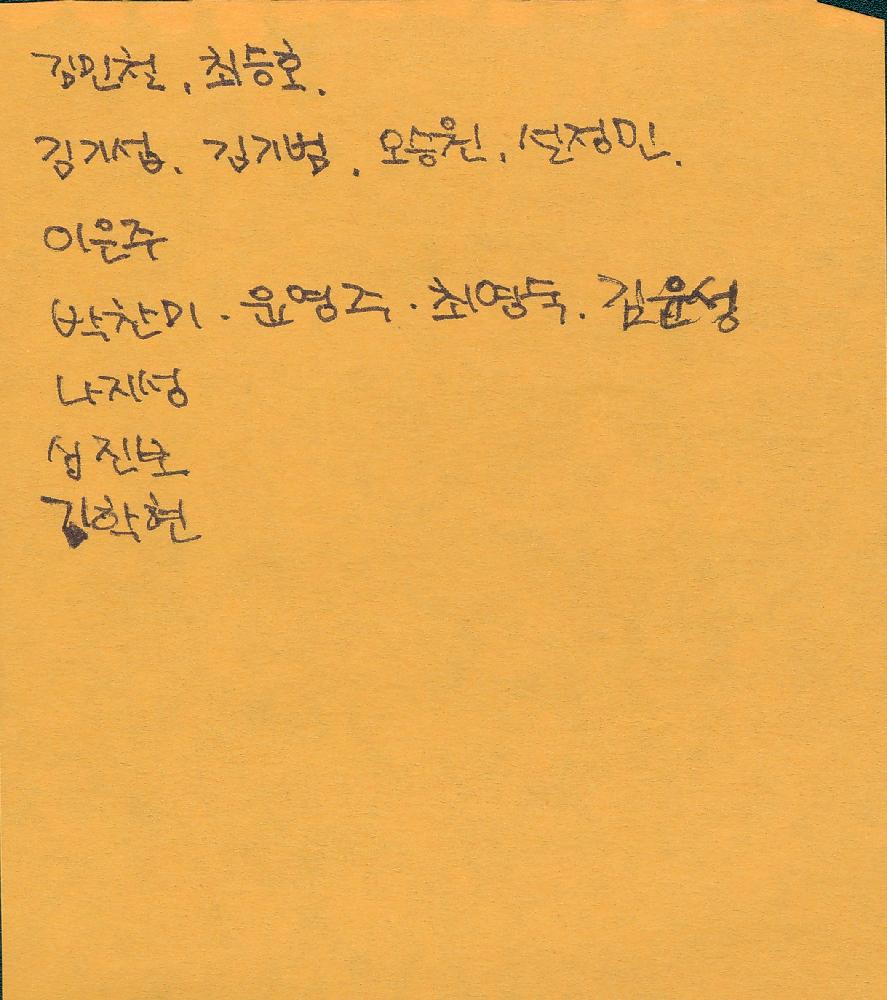 김민철, 최승호.
김기성. 김기범. 오승원. 설정민.
이은주
박찬미 · 윤영주 · 최영숙. 김윤성
나지성
심진보
김학현